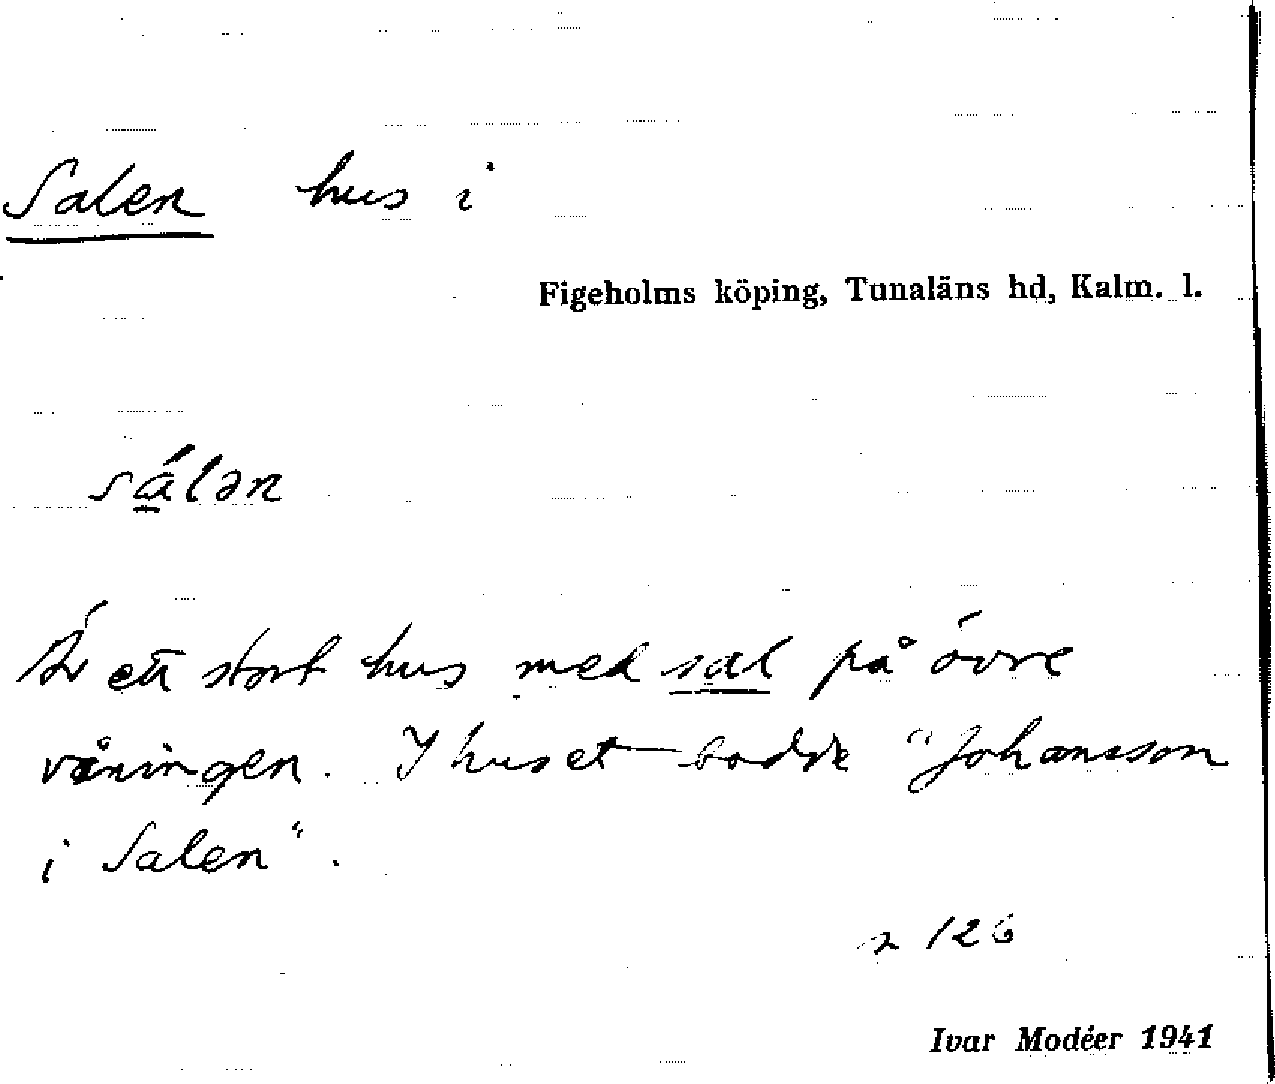 Salen hus i
Figeholms köping, Tunaläns hd, Kalm. l.
sá̱lən
Är ett stort hus med sal på övre
våningen. I huset bodde "Johansson
i Salen".
126
Ivar Modéer 1941